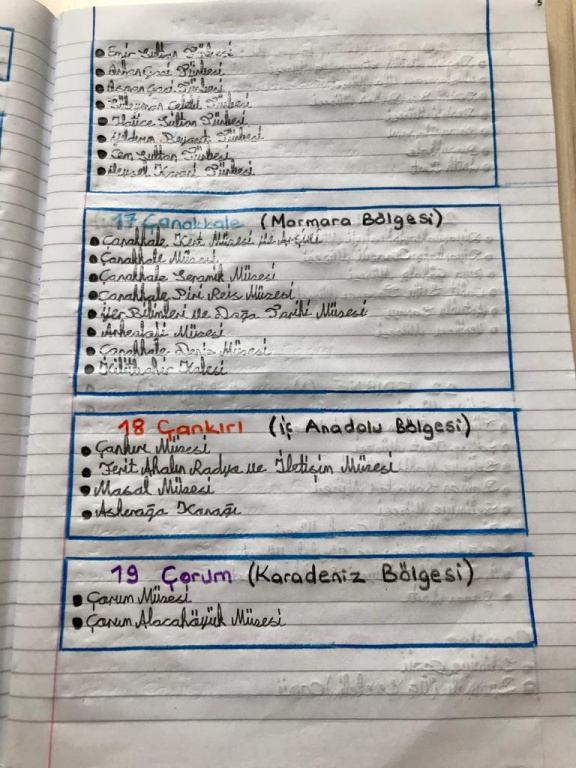 5
• Emir Sultan Türbesi
• Orhan Gazi Türbesi
• Osman Gazi Türbesi
• Süleyman Çelebi Türbesi
• Hatice Sultan Türbesi
• Yıldırım Beyazıt Türbesi
• Cem Sultan Türbesi
• Veysel Karani Türbesi
17 Çanakkale (Marmara Bölgesi)
• Çanakkale Kent Müzesi ile Arşivi
• Çanakkale Müzesi
• Çanakkale Seramik Müzesi
• Çanakkale Piri Reis Müzesi
• Yer Bilimleri ve Doğa Tarihi Müzesi
• Arkeoloji Müzesi
• Çanakkale Deniz Müzesi
• Kilitbahir Kalesi
18 Çankırı (İç Anadolu Bölgesi)
• Çankırı Müzesi
• Ferit Akalın Radyo ve İletişim Müzesi
• Masal Müzesi
• Konağı
19 Çorum (Karadeniz Bölgesi)
• Çorum Müzesi
• Çorum Alacahöyük Müzesi